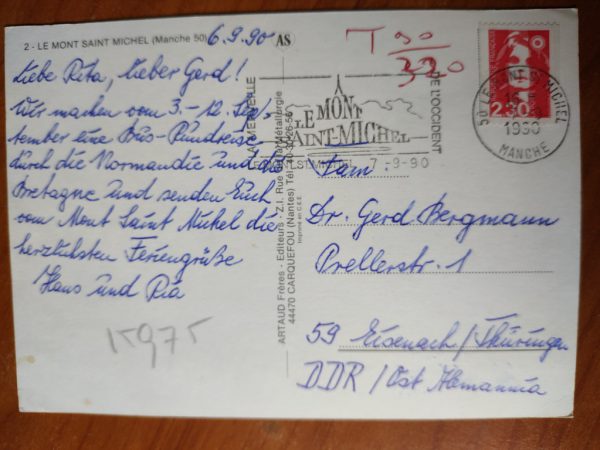 2 - LE MONT SAINT MICHEL (Manche 50)
6.9.90
AS
Liebe Rita, lieber Gerd!
Wir machen vom 3.-12. Sep-
tember eine Bus-Rundreise
durch die Normandie und die
Bretagne und senden Euch
vom Mont Saint Michel die
herzlichsten Feriengrüße
Hans und Ria
15975
ARTAUD Frères - Editeurs - Z.I. Rue de la Métallurgie
44470 CARQUEFOU (Nantes) Tél.
Imprimé en C.E.E.
T 90
320
LE MONT
SAINT-MICHEL
DE L'OCCIDENT
7-9-90
50 LE MONT ST MICHEL
1990
MANCHE
2,30
Fam.
Dr. Gerd Bergmann
Prellerstr. 1
59 Eisenach/Thüringen
DDR/Ost Alemannia